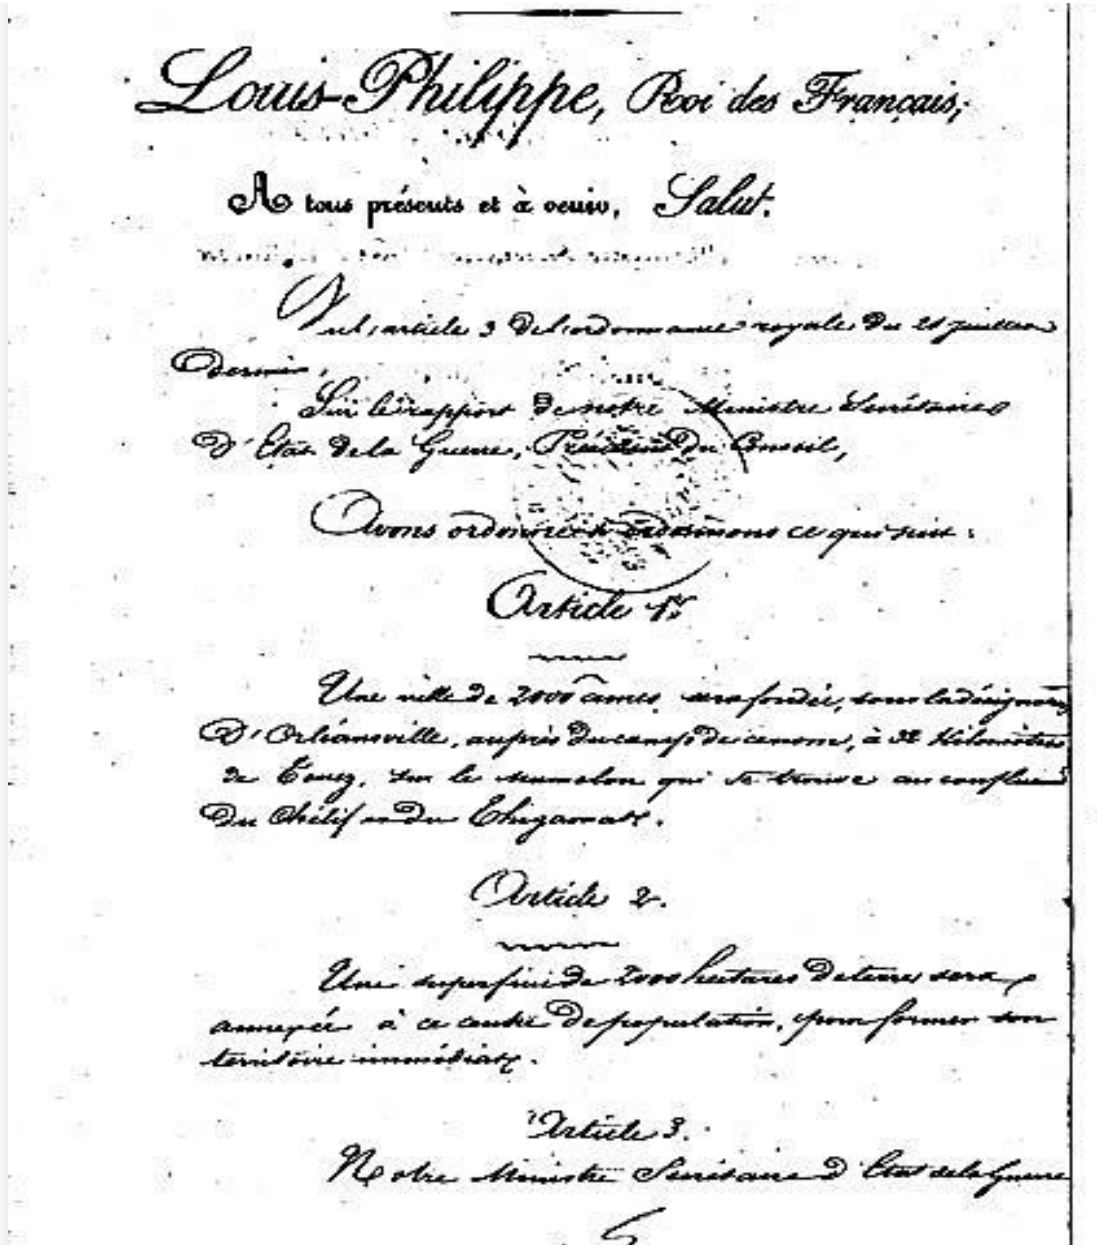 Louis-Philippe, Roi des Français,
A tous présents et à venir, Salut.
Vu l'article 3 de l'ordonnance royale du 21 juillet
dernier,
Sur le rapport de notre Ministre Secrétaire
D'Etat de la Guerre, Président du Conseil,
Avons ordonné et ordonnons ce qui suit :
Article 1er
Une ville de 2000 âmes, sera fondée, sous la désignation
D'Orléansville, auprès du camp de ce nom, à Kilomètres
de Tenez, sur le mamelon qui se trouve au confluent
Du Chélif et du
Article 2.
Une superficie de 2000 hectares de terres sera
annexée à ce centre de population, pour former son
territoire immédiat.
Article 3.
Notre Ministre Secrétaire d'Etat de la Guerre